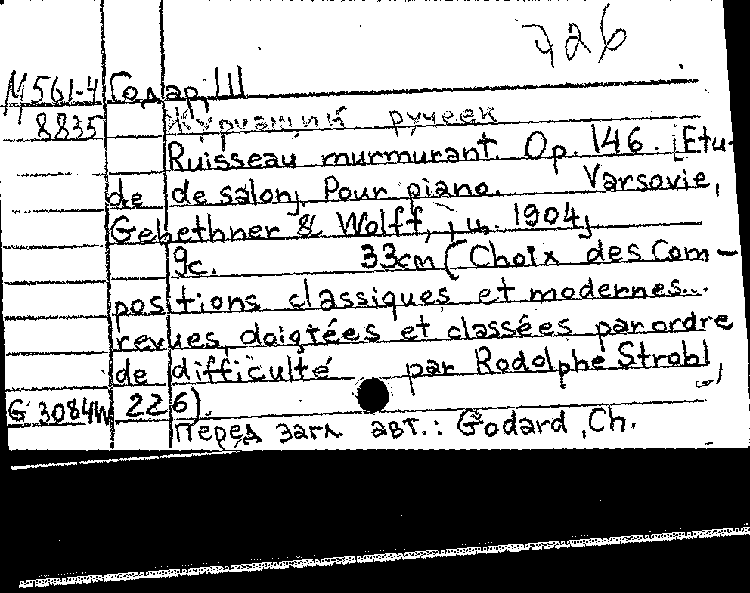 426
М561-4 Годар, Ш
8835 Журчащий ручеек
Ruisseau murmurant. Op. 146. [Etu-
de de salon] Pour piano. Varsovie,
Gebethner & Wolff, [ц. 1904]
9с. 33cm (Choix des Com-
positions classiques et modernes...
revues, doigtées et classées par ordre
de difficulté par Rodolphe Strobl,
G 3084W 226).
Перед загл. авт.: Godard, Ch.